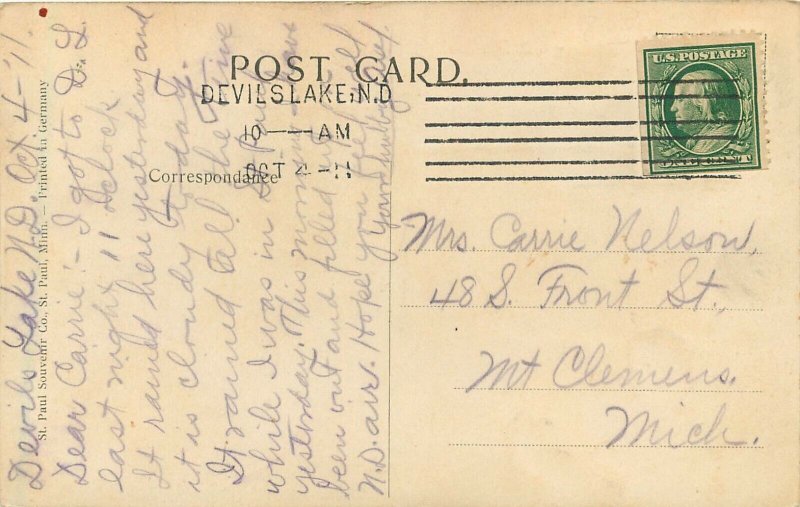 POST CARD.
DEVILS LAKE, N.D
10 — AM
OCT 4 - 11
Correspondence
U.S. POSTAGE
ONE CENT
St. Paul Souvenir Co., St. Paul, Minn. — Printed in Germany
Devils Lake N.D. Oct 4-'11.
Dear Carrie:- I got to D. L.
last night 11 oclock
It rained here yesterday and
it is cloudy to-day.
It rained all the time
while I was in St. Paul
yesterday. This morning have
been out and filled up on
N.D. air. Hope you feel
Your Husband
Mrs. Carrie Nelson,
48 S. Front St.,
Mt Clemens.
Mich.